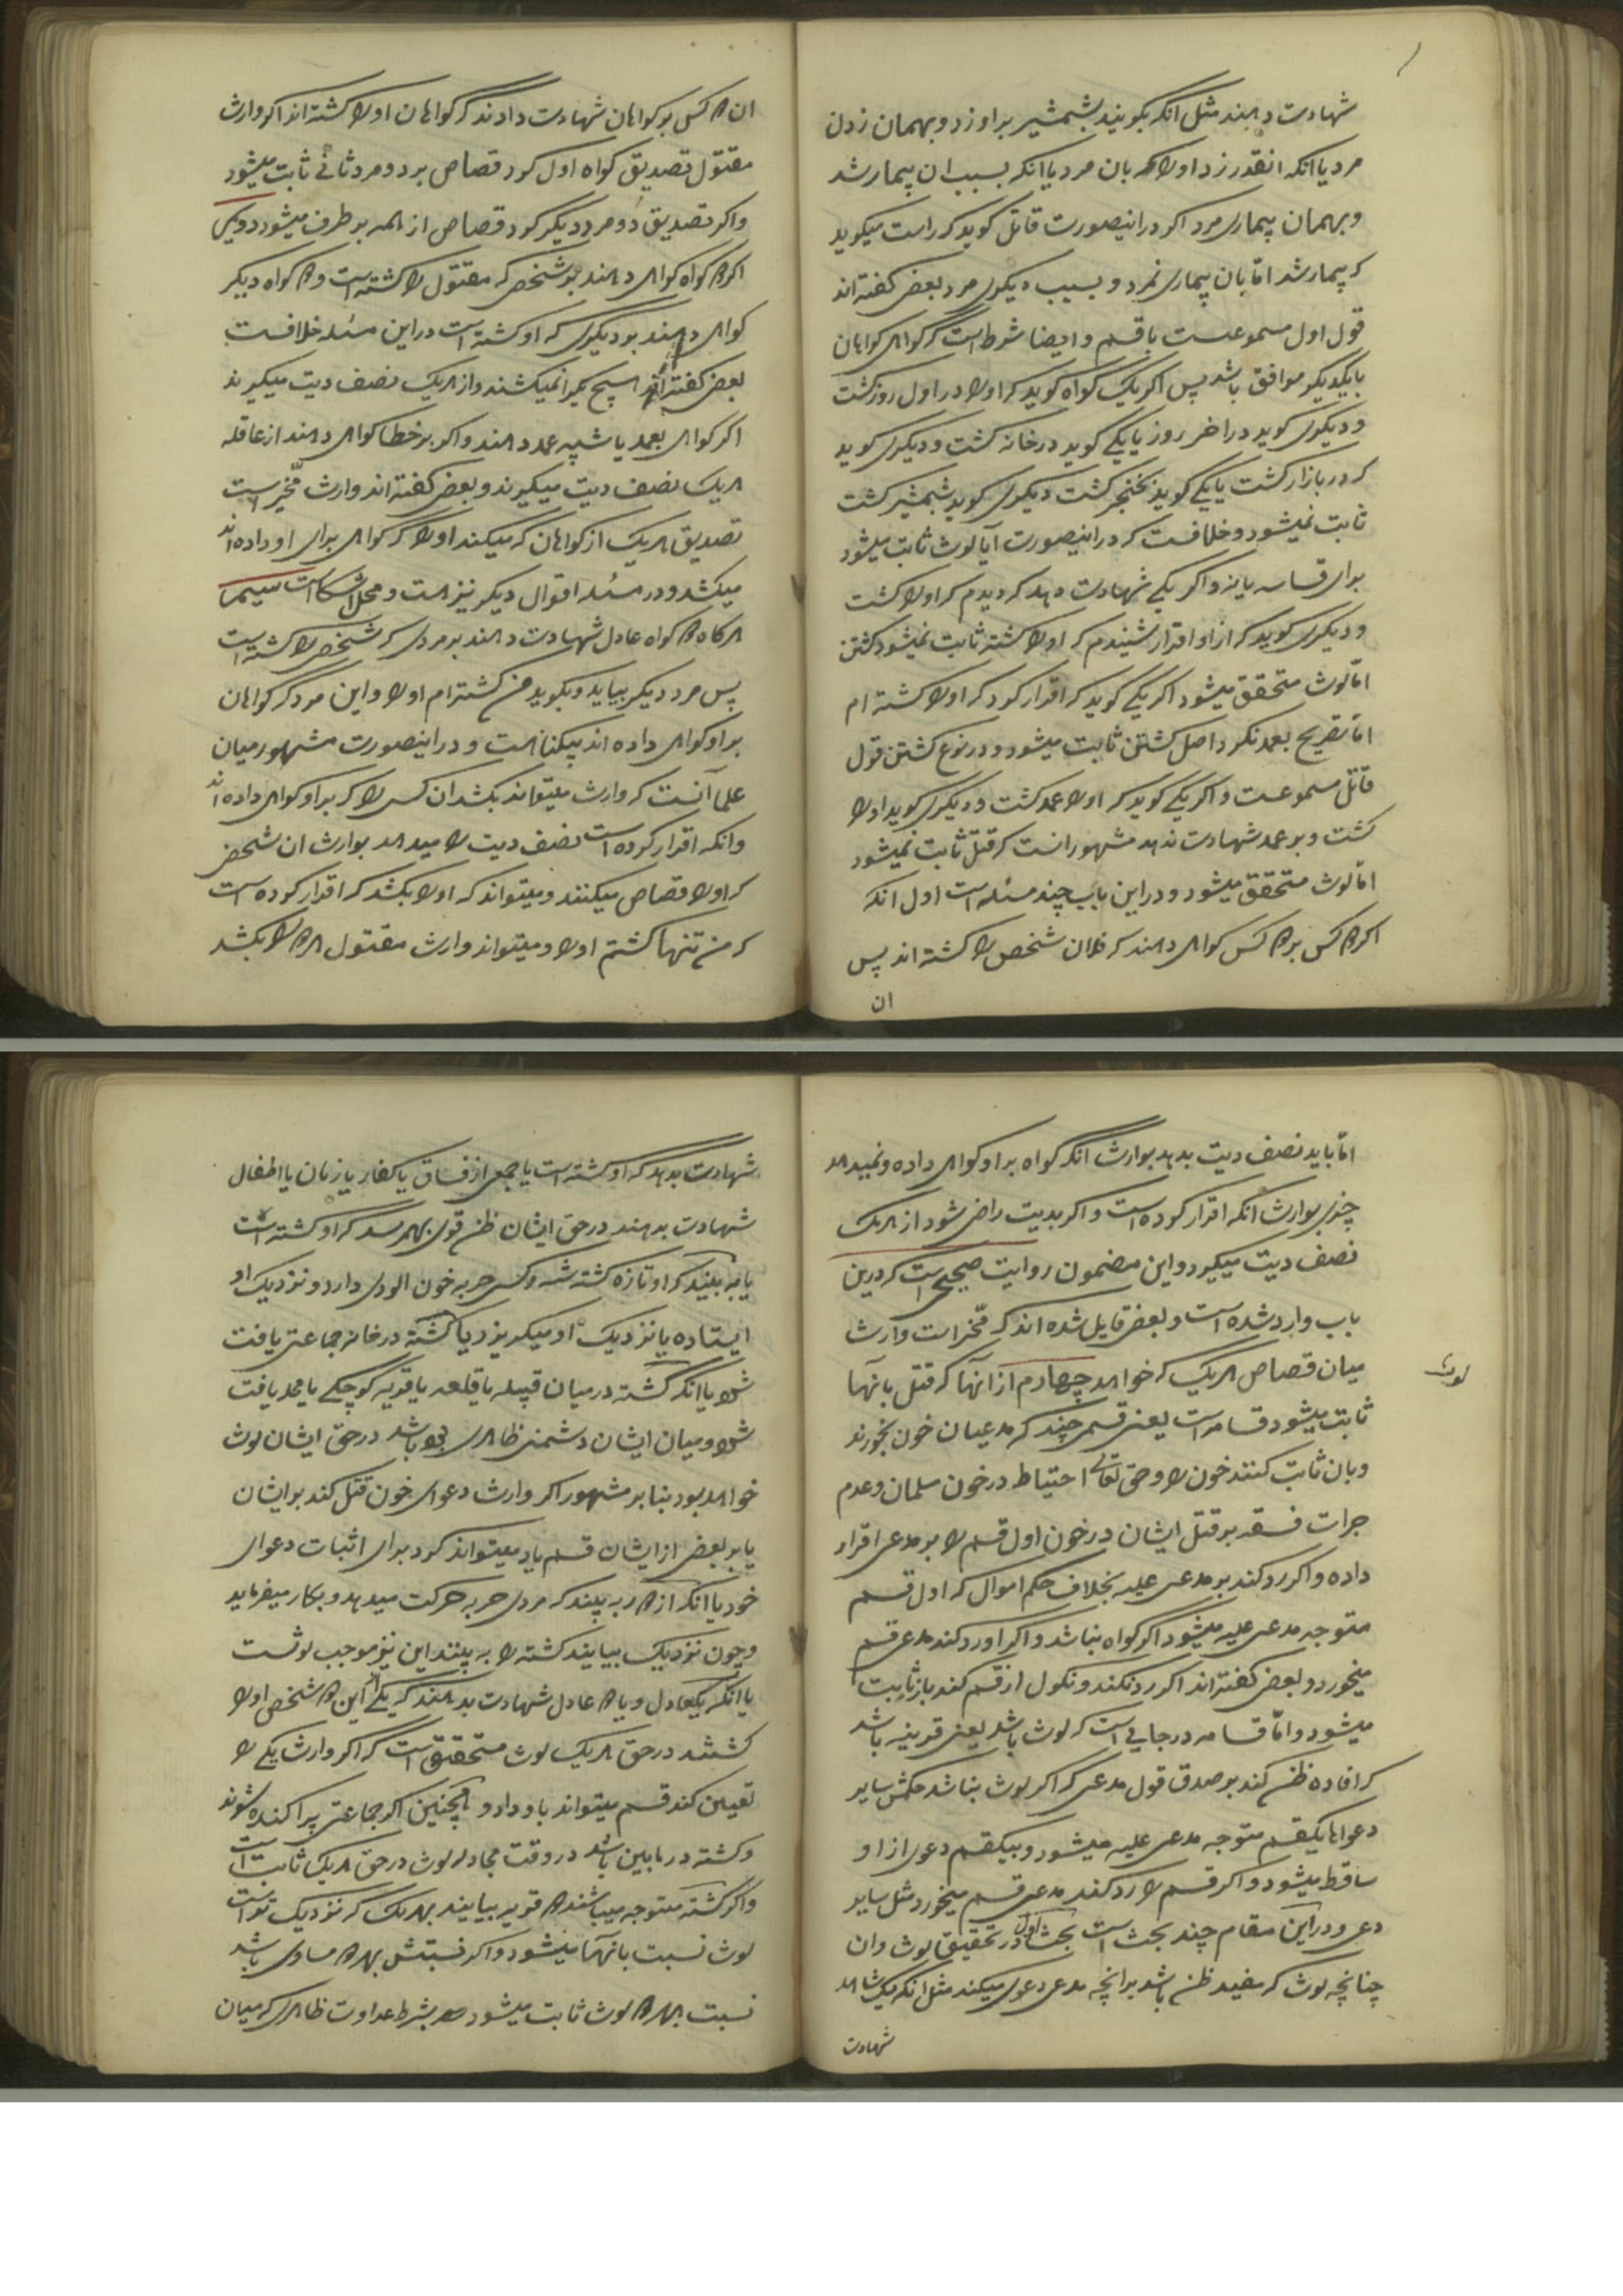 شهادت دهند مثل انکه بکویند بشمشیر بر او زد و بهمان زدن
مرد یا انکه انقدر زد او را که بان مرد یا انکه بسبب ان بیمار شد
و بهمان بیماری مرد اکر در اینصورت قاتل کوید که راست میکوید
که بیمار شد اما بان بیماری نمرد و بسبب دیکری مرد بعضی کفته اند
قول اول مسموعست با قسم و ایضا شرط است که کواهی کواهان
با یکدیکر موافق باشد پس اکر یک کواه کوید که او را در اول روز کشت
و دیکری کوید در اخر روز یا یکی کوید در خانه کشت و دیکری کوید
که در بازار کشت یا یکی کوید بخنجر کشت دیکری کوید بشمشیر کشت
ثابت نمیشود و خلافست که در اینصورت آیا لوث ثابت میشود
برای قسامه یا نه و اکر یکی شهادت دهد که دیدم که او را کشت
و دیکری کوید که از او اقرار شنیدم که او را کشته ثابت نمیشود کشتن
اما لوث متحقق میشود اکر یکی کوید که اقرار کرد که او را کشته ام
اما تصریح بعمد نکرد اصل کشتن ثابت میشود و در نوع کشتن قول
قاتل مسموعست و اکر یکی کوید که او را عمد کشت و دیکری کوید او را
کشت و بر عمد شهادت ندهد مشهور انست که قتل ثابت نمیشود
اما لوث متحقق میشود و در این باب چند مسئله است اول انکه
اکر ۲ کس بر ۲ کس کواهی دهند که فلان شخص را کشته اند پس
ان
ان ۲ کس بر کواهان شهادت دادند که کواهان او را کشته اند اکر وارث
مقتول تصدیق کواه اول کرد قصاص بر دو مرد ثانی ثابت میشود
و اکر تصدیق دو مرد دیکر کرد قصاص از همه بر طرف میشود دویم
اکر ۲ کواه کواهی دهند بر شخصی که مقتول را کشته است و ۲ کواه دیکر
کواهی دهند بر دیکری که او کشته است در این مسئله خلافست
بعضی کفته اند هیچ یکرا نمیکشند و از هر یک نصف دیت میکیرند
اکر کواهی بعمد یا شبیه عمد دهند و اکر بر خطا کواهی دهند از عاقله
هر یک نصف دیت میکیرند و بعضی کفته اند وارث مخیر است
تصدیق هر یک از کواهان که میکند او را که کواهی برای او داده اند
میکشد و در مسئله اقوال دیکر نیز هست و محل اشکال است سیم
هرکاه ۲ کواه عادل شهادت دهند بر مردی که شخصی را کشته است
پس مرد دیکر بیاید و بکوید من کشته ام او را و این مرد که کواهان
بر او کواهی داده اند بیکناهست و در اینصورت مشهور میان
علما آنست که وارث میتواند بکشد ان کسی را که بر او کواهی داده اند
و انکه اقرار کرده است نصف دیت را میدهد بوارث ان شخص
که او را قصاص میکنند و میتواند که او را بکشد که اقرار کرده است
که من تنها کشتم او را و میتواند وارث مقتول هر ۲ را بکشد
اما باید نصف دیت بدهد بوارث انکه کواه بر او کواهی داده و نمیدهد
چیزی بوارث انکه اقرار کرده است و اکر بدیت راضی شود از هر یک
نصف دیت میکیرد و این مضمون روایت صحیحی است که درین
باب وارد شده است و بعضی قایل شده اند که مخیر است وارث
میان قصاص هر یک که خواهد چهارم از انها که قتل بانها
لوث
ثابت میشود قسامه است یعنی قسمی چند که مدعیان خون بخورند
و بان ثابت کنند خون را و حق تعالی احتیاط در خون مسلمان و عدم
جرات فسقه بر قتل ایشان در خون اول قسم را بر مدعی اقرار
داده و اکر رد کند بر مدعی علیه بخلاف حکم اموال که اول قسم
متوجه مدعی علیه میشود اکر کواه نباشد و اکر او رد کند مدعی قسم
میخورد و بعضی کفته اند اکر رد نکند و نکول از قسم کند باز ثابت
میشود و اما قسامه در جایی است که لوث باشد یعنی قرینه باشد
که افاده ظن کند بر صدق قول مدعی که اکر لوث نباشد حکمش سایر
دعواها یکقسم متوجه مدعی علیه میشود و بیکقسم دعوی از او
ساقط میشود و اکر قسم را رد کند مدعی قسم میخورد مثل سایر
دعوی و در این مقام چند بحث است بحث اول در تحقیق لوث و ان
چنانچه لوث که مفید ظن باشد بر انچه مدعی دعوی میکند مثل انکه یک شاهد
شهادت
شهادت بدهد که او کشته است یا جمعی از فساق یا کفار یا زنان یا اطفال
شهادت بدهند در حق ایشان ظن قوی بهم رسد که او کشته است
یا به بیند که او تازه کشته شده و کسی حربه خون الودی دارد و نزدیک او
ایستاده یا نزدیک او میکریزد یا کشته در خانه جماعتی یافت
شود یا انکه کشته در میان قبیله یا قلعه یا قریه کوچکی یا محله یافت
شود و میان ایشان دشمنی ظاهری بوده باشد در حق ایشان لوث
خواهد بود بنا بر مشهور اکر وارث دعوای خون قتل کند بر ایشان
یا بر بعضی از ایشان قسم یاد میتواند کرد برای اثبات دعوای
خود یا انکه از دور به بیند که مردی حربه حرکت میدهد و بکار میفرماید
و چون نزدیک بیایند کشته را به بینند این نیز موجب لوثست
یا انکه یکعادل و یا ۲ عادل شهادت بدهند که یکی از این ۲ شخص او را
کشتند در حق هر یک لوث متحقق است که اکر وارث یکی را
تعیین کند قسم میتواند باو داد و همچنین اکر جماعتی پراکنده شوند
و کشته در مابین باشد در وقت مجادله لوث در حق هر یک ثابت است
و اکر کشته متوجه میباشند ۲ قریه بیایند بهر یک که نزدیک تر است
لوث نسبت بانها میشود و اکر نسبتش بهر ۲ مساوی باشد
نسبت بهر ۲ لوث ثابت میشود بشرط عداوت ظاهری که میان